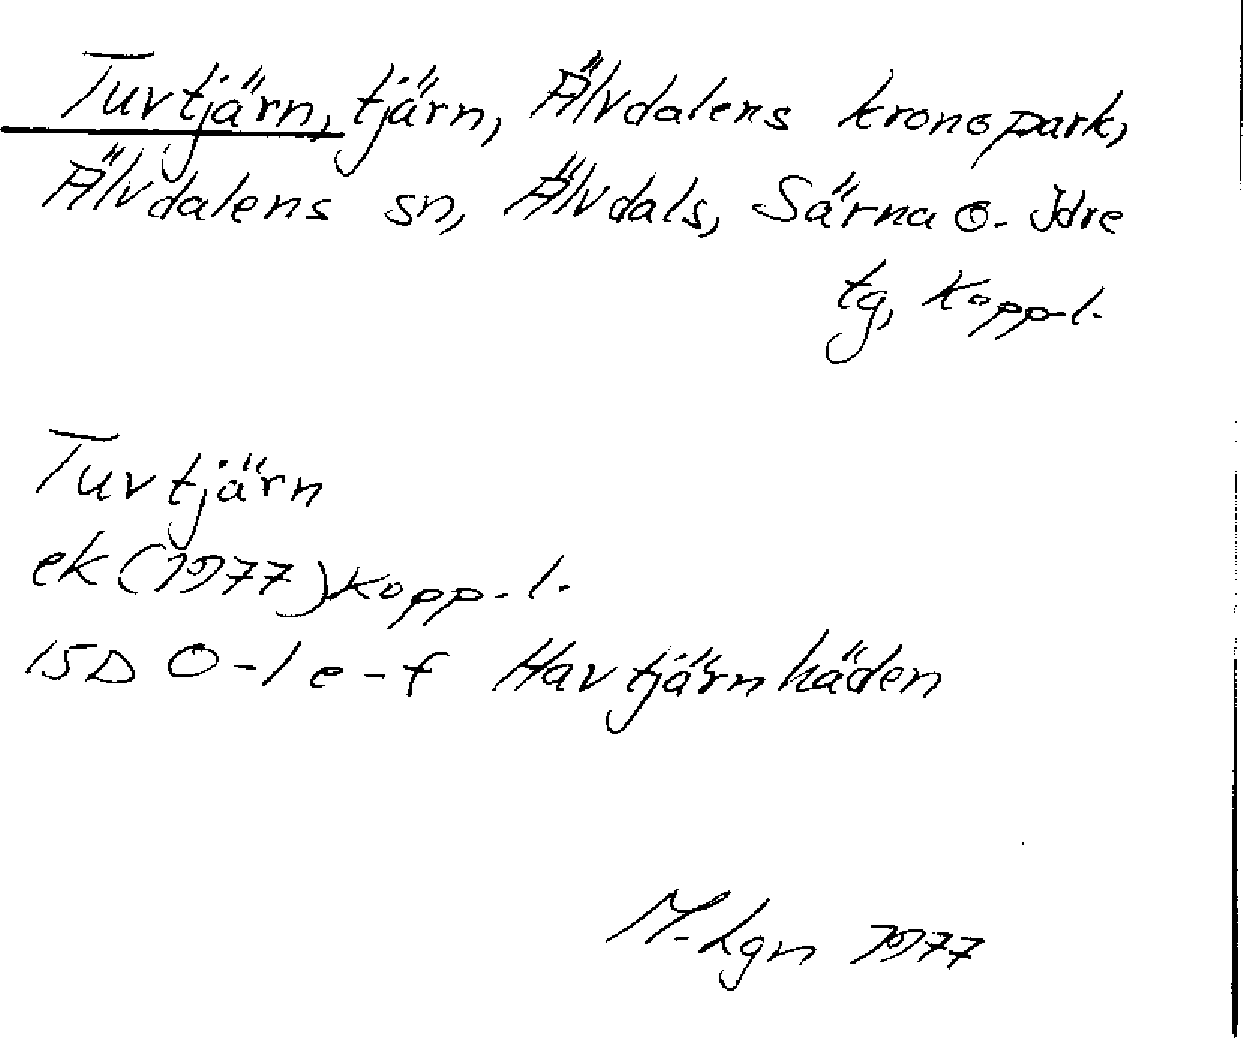 Tuvtjärn, tjärn, Älvdalens kronopark,
Älvdalens sn, Älvdals, Särna o. Idre
tg, Kopp.l.
Tuvtjärn
ek (1977) Kopp.l.
15D 0-1 e-f Havtjärnhäden
M.Lgn 1977